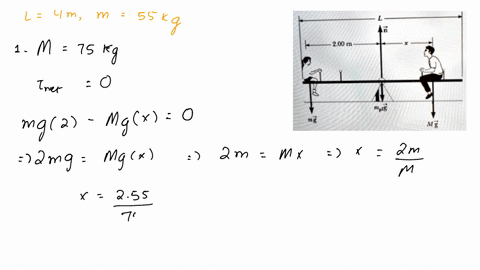 L = 4m, m = 55 kg
1. M = 75 kg
τnet = 0
mg(2) - Mg(x) = 0
=> 2mg = Mg(x) => 2m = Mx => x = 2m/M
x = 2.55/7
L
n
2.00 m
x
mg
Mg